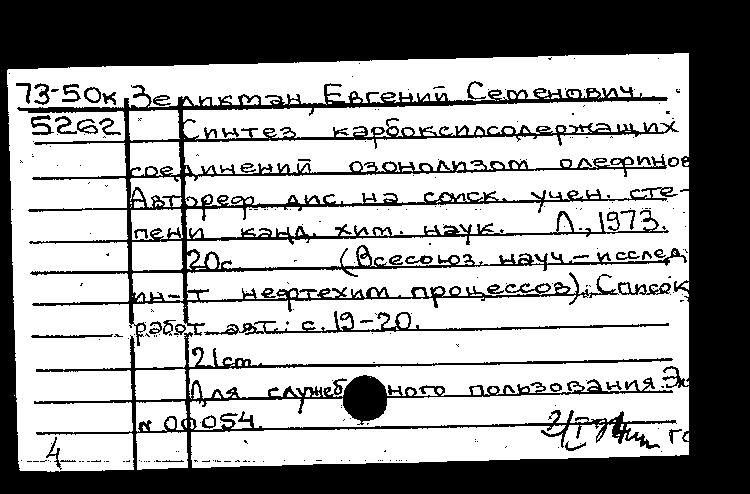 73-50к Зеликтан, Евгений Семенович.
5262 Синтез карбоксилсодержащих
соединений озонолизом олефинов
Автореф. дис. на соиск. учен. сте-
пени канд. хим. наук. Л., 1973.
20с. (Всесоюз. науч.-исслед.
ин-т нефтехим. процессов). Список
работ авт.: с. 19-20.
21см.
Для служебного пользования. Эк
№ 00054.
4